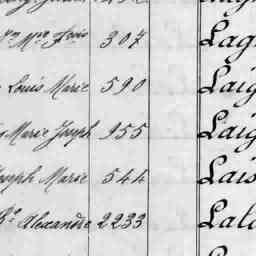 Mie Frois 307 Lag
Louis Marie 590 Laig
Marie Joseph 955 Laig
Joseph Marie 544 Lais
Alexandre 2233 Lala